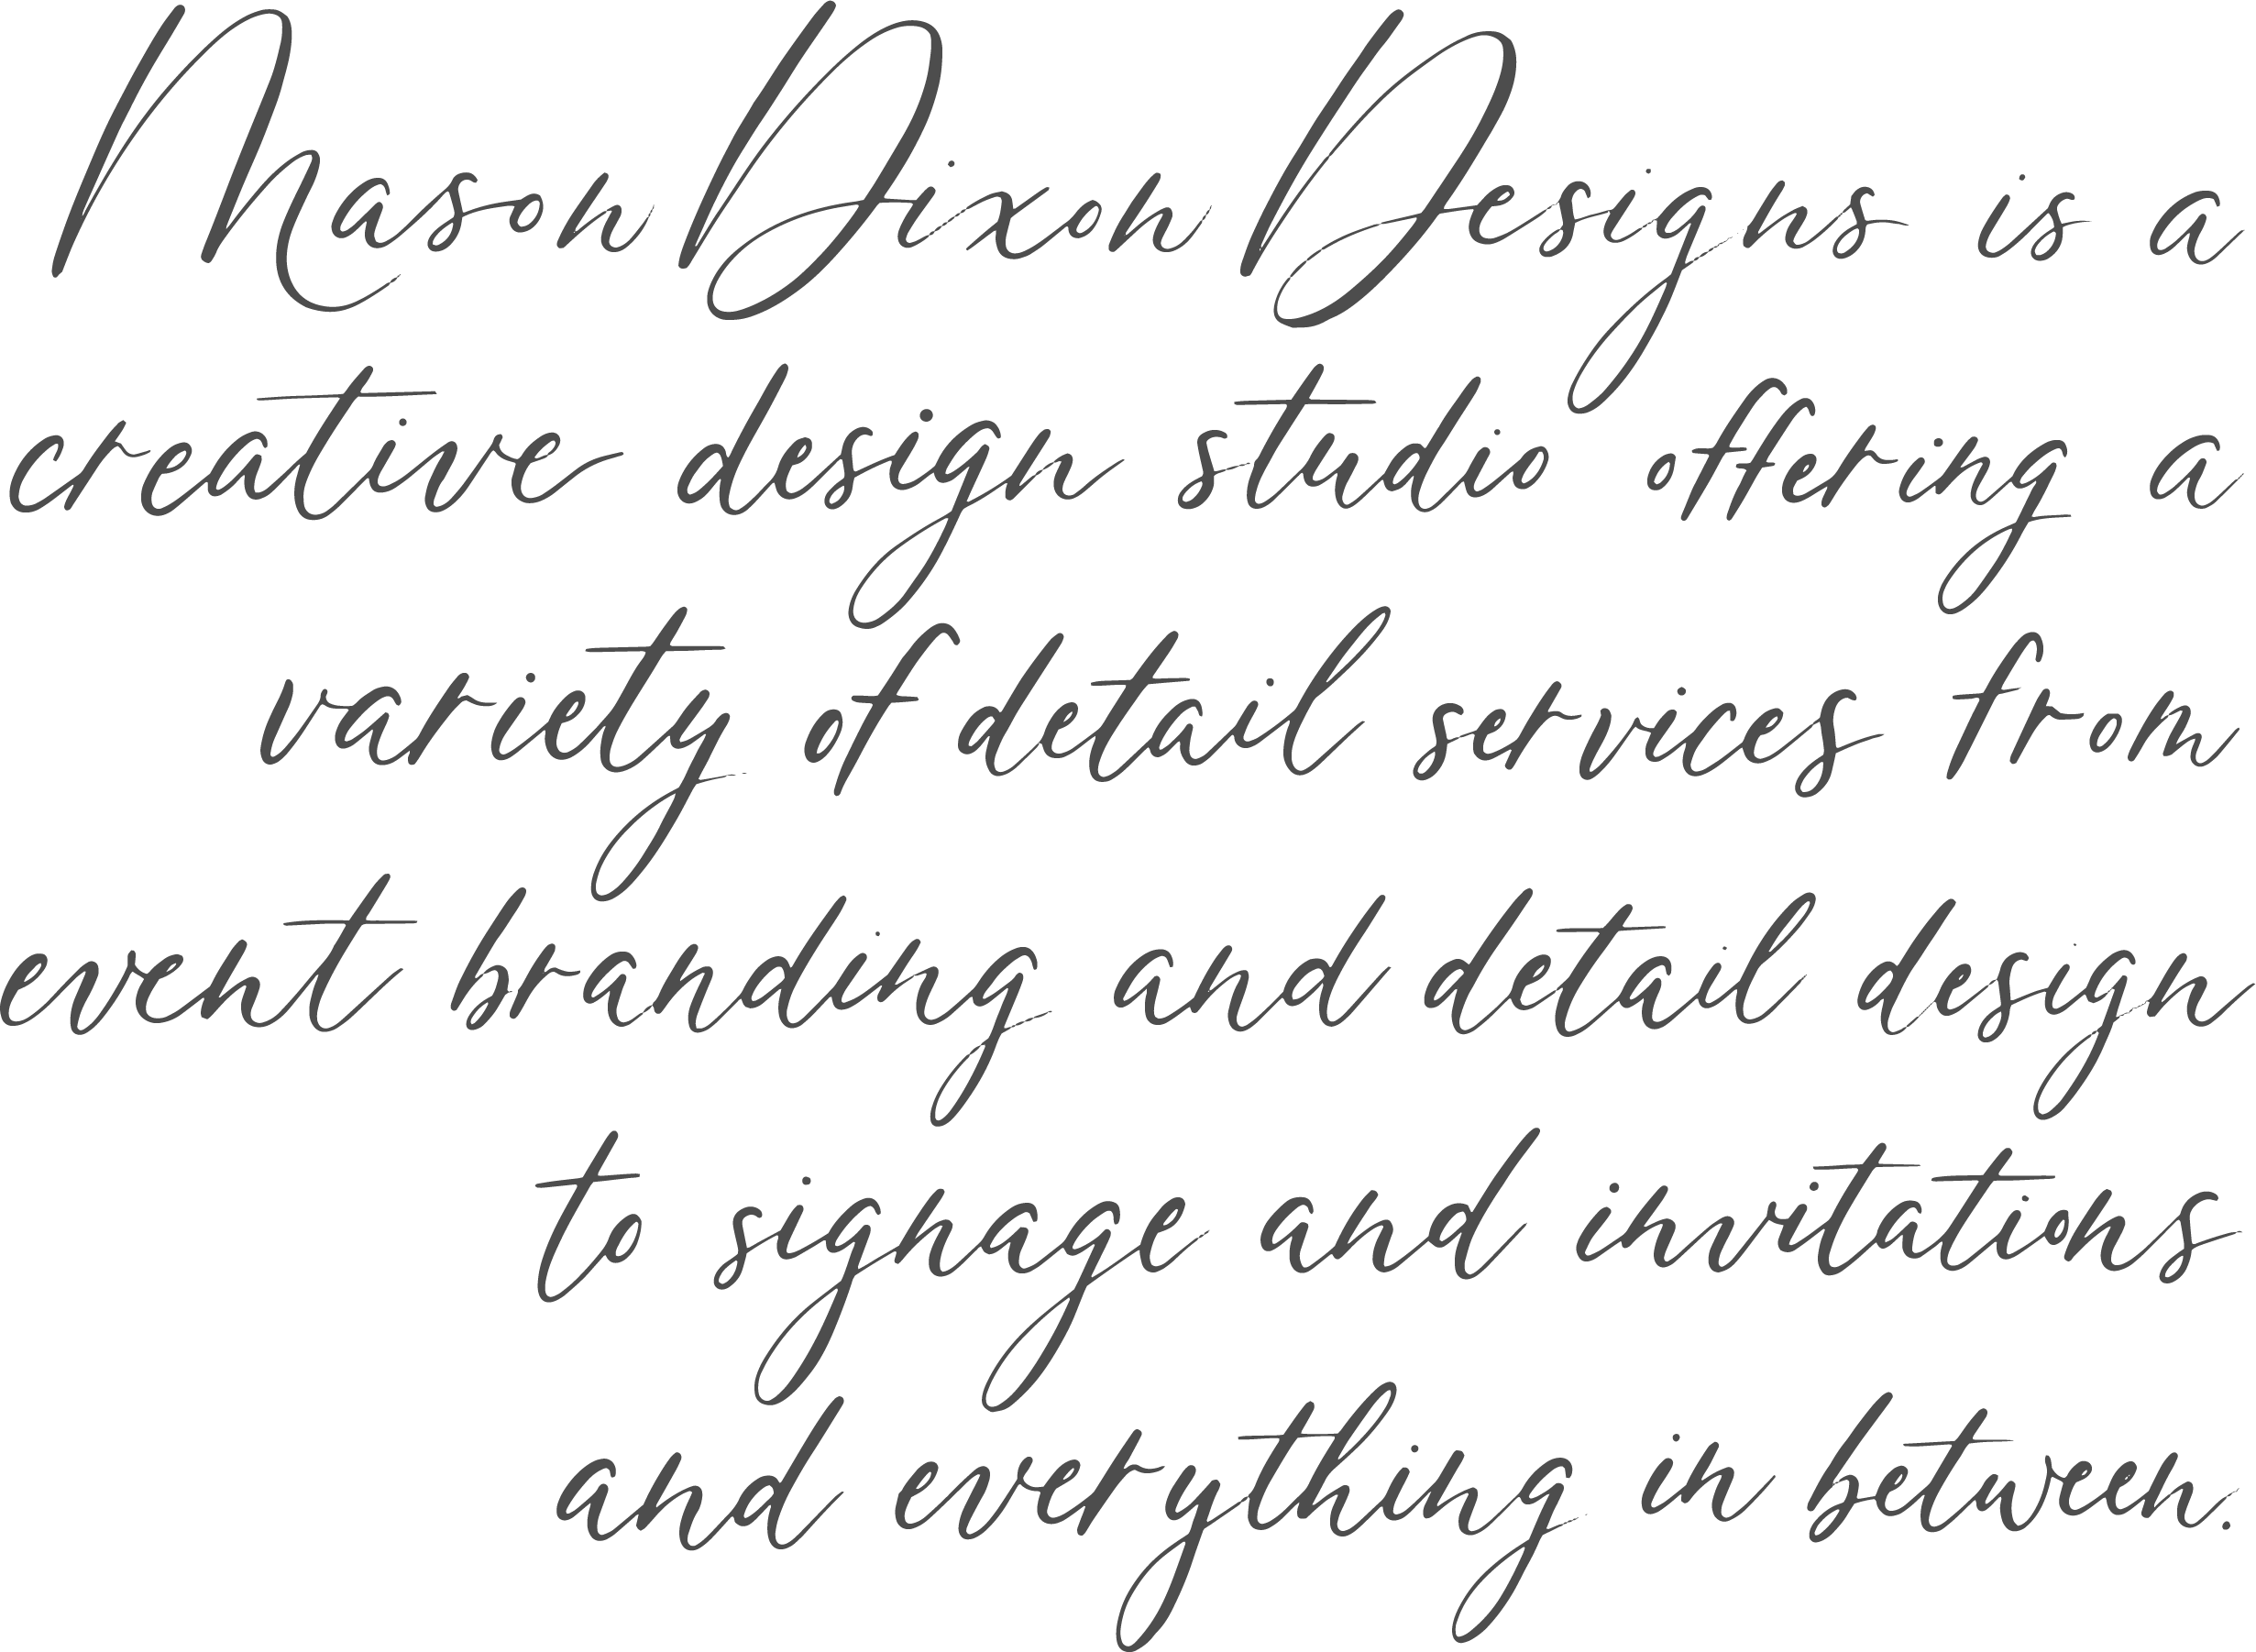 Mason Dixon Designs is a
creative design studio offering a
variety of detail services from
event branding and detail design
to signage and invitations
and everything in between.